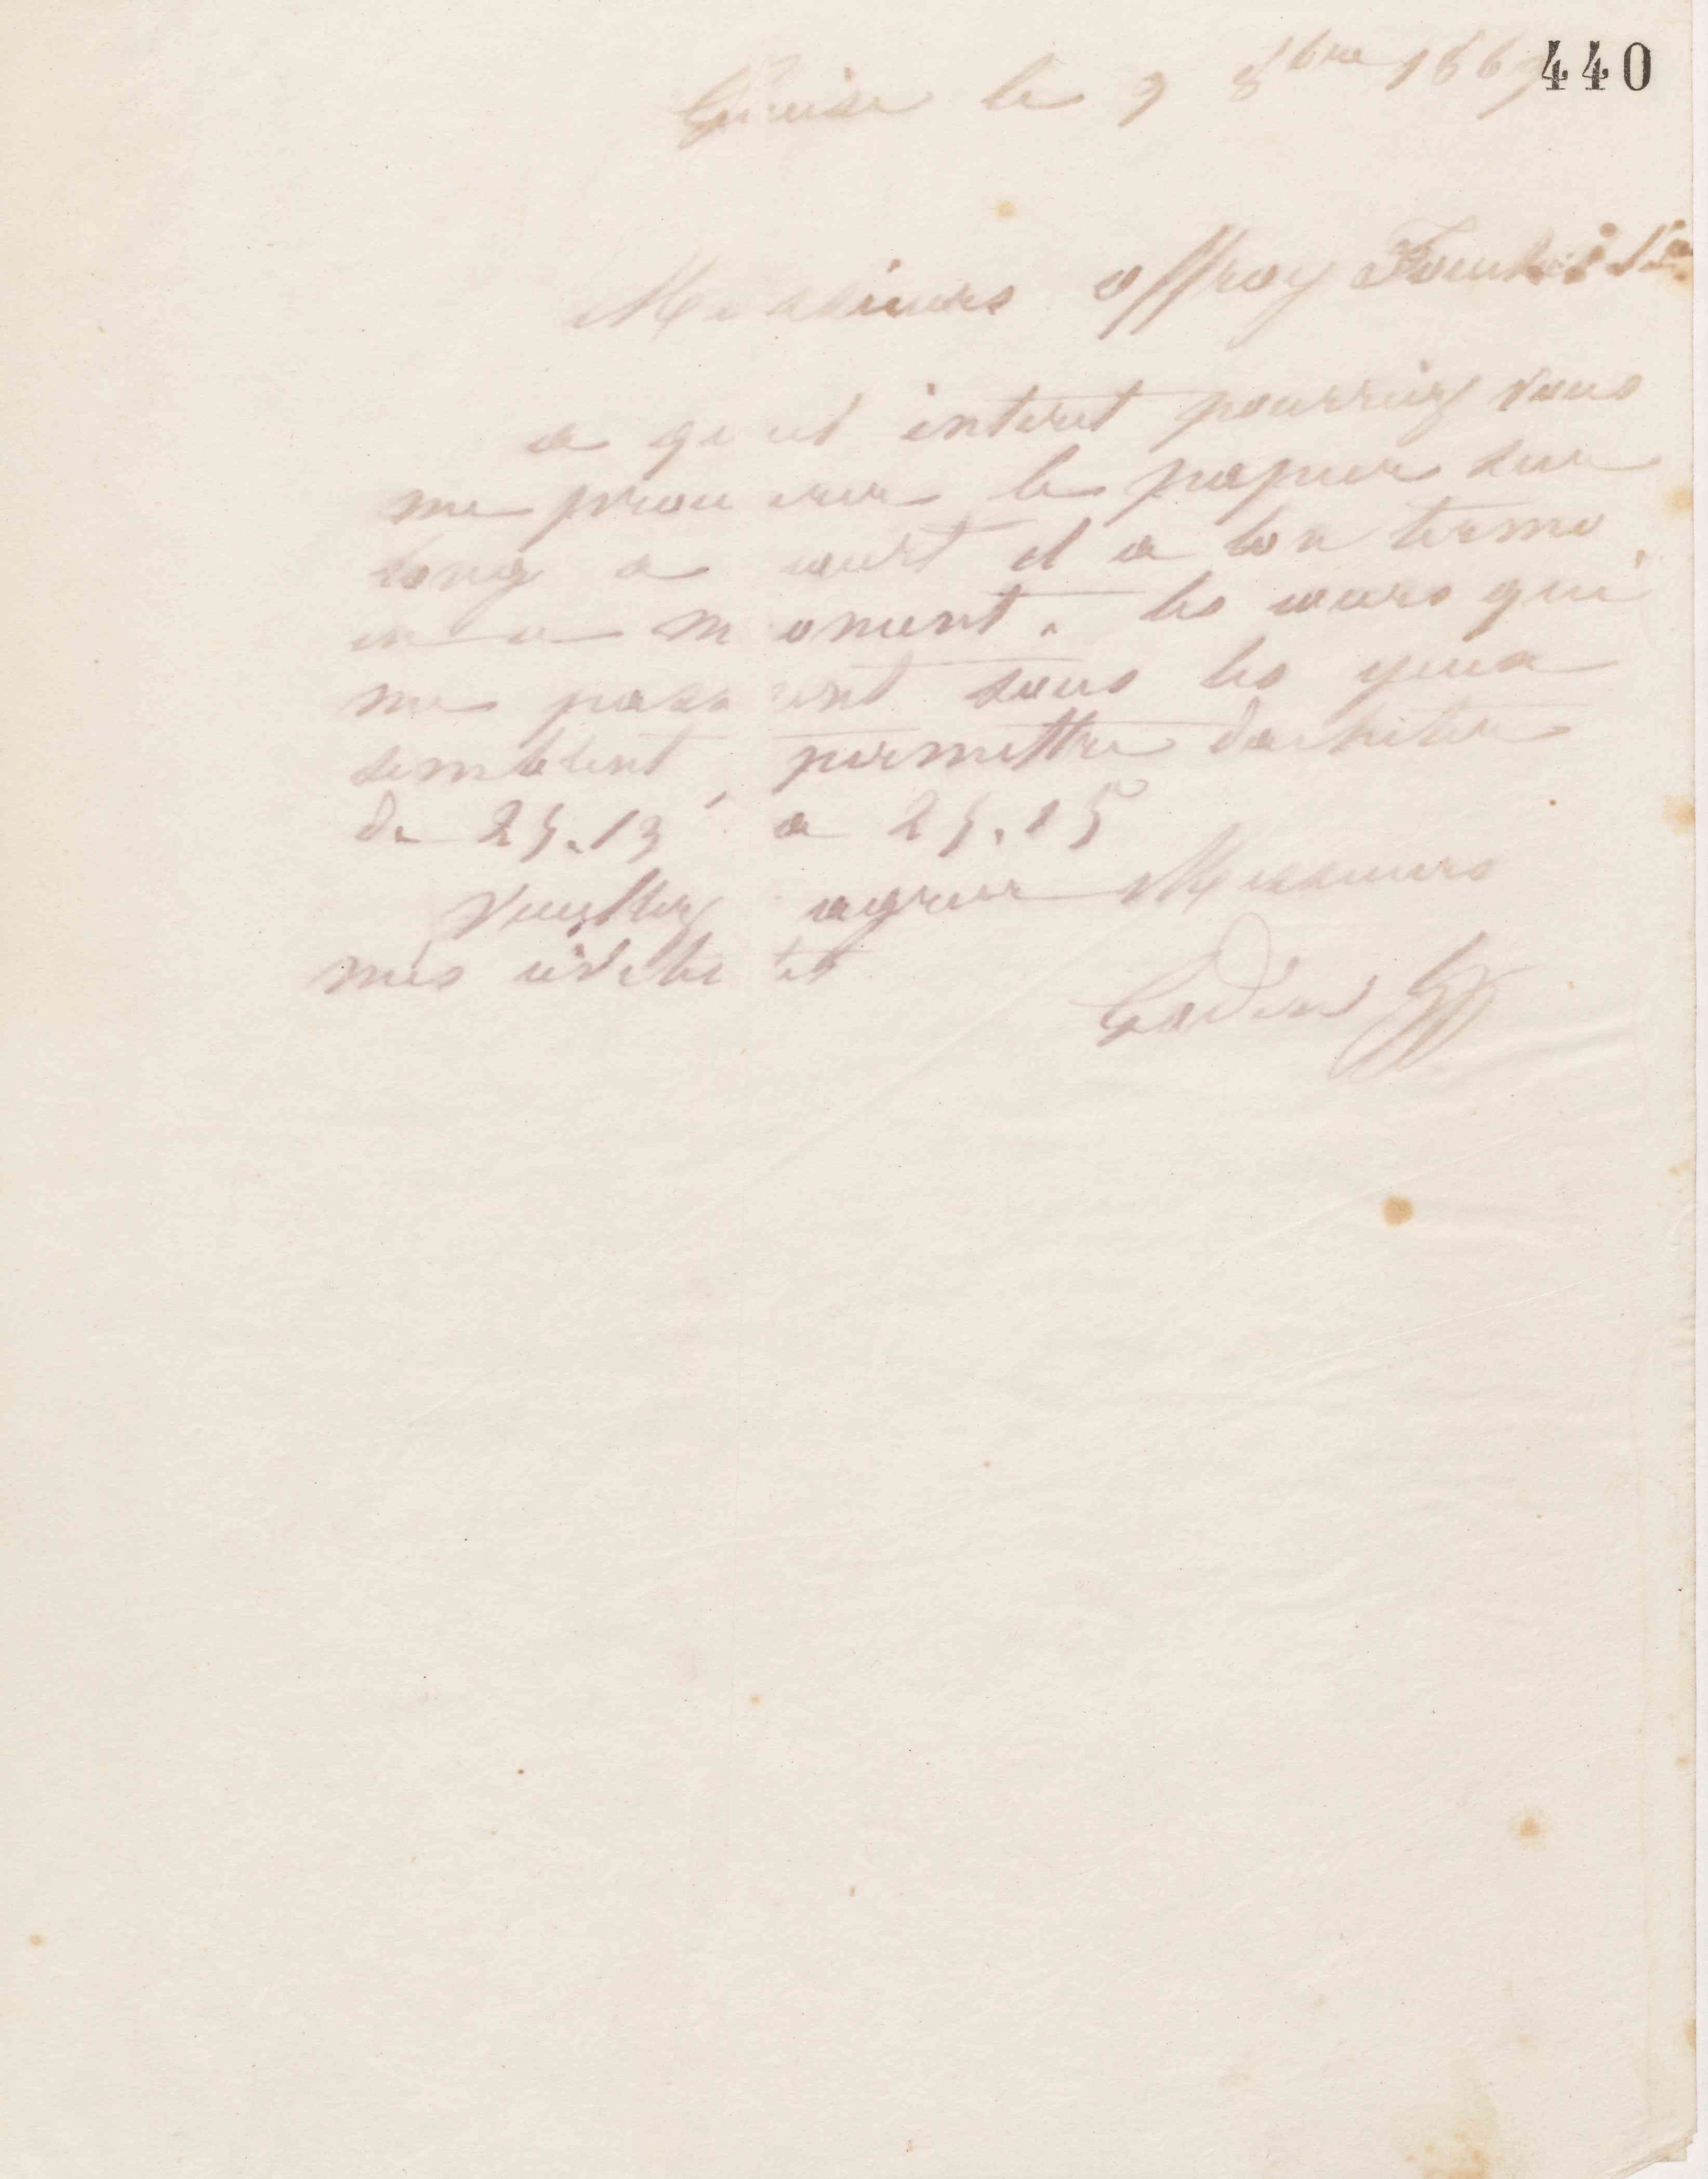 440
Guise le 9 8bre 1869
Messieurs Offroy
a quel interet pourriez vous
me procurer le papier sur
long a court et a lon terme
en ce moment. les cours qui
me passent sous les yeux
semblent permettre dacheter
de 25.13 a 25.15
Veuillez agreer Messieurs
mes civilites
Godin